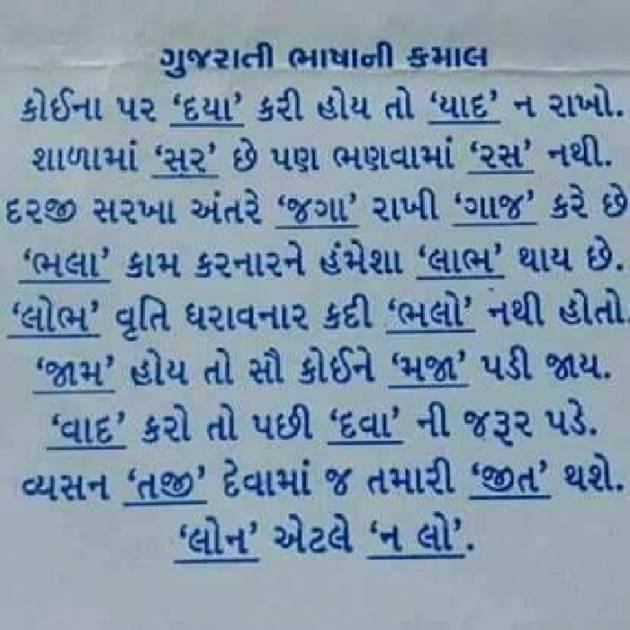 ગુજરાતી ભાષાની કમાલ
કોઈના પર ‘દયા’ કરી હોય તો ‘યાદ’ ન રાખો.
શાળામાં ‘સર’ છે પણ ભણવામાં ‘રસ’ નથી.
દરજી સરખા અંતરે ‘જગા’ રાખી ‘ગાજ’ કરે છે
‘ભલા’ કામ કરનારને હંમેશા ‘લાભ’ થાય છે.
‘લોભ’ વૃતિ ધરાવનાર કદી ‘ભલો’ નથી હોતો.
‘જામ’ હોય તો સૌ કોઈને ‘મજા’ પડી જાય.
‘વાદ’ કરો તો પછી ‘દવા’ ની જરૂર પડે.
વ્યસન ‘તજી’ દેવામાં જ તમારી ‘જીત’ થશે.
‘લોન’ એટલે ‘ન લો’.